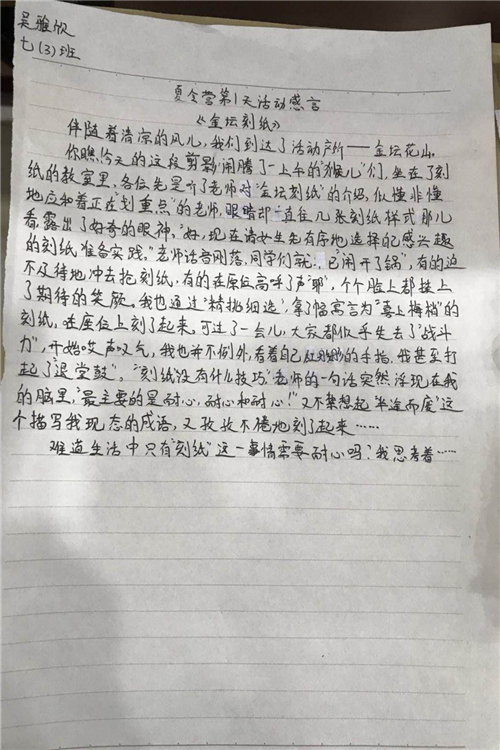 吴雅欣
七(3)班
夏令营第1天活动感言
《金坛刻纸》
伴随着清凉的风儿，我们到达了活动场所——金坛花山。
你瞧，今天的这段剪影：闹腾了一上午的"猴儿"们，坐在了刻
纸的教室里。各位先是听了老师对"金坛刻纸"的介绍，似懂非懂
地应和着正在"划重点"的老师，眼睛却一直往几张刻纸样式那儿
看，露出了好奇的眼神。"好，现在请女生先有序地选择自己感兴趣
的刻纸，准备实践。"老师话音刚落，同学们就已"闹开了锅"，有的迫
不及待地冲去抢刻纸，有的在原位高呼了声"耶"，个个脸上都挂上
了期待的笑颜。我也通过"精挑细选"，拿了幅寓言为"喜上梅梢"的
刻纸，在座位上刻了起来。可过了一会儿，大家都似乎失去了"战斗
力"，开始哎声叹气，我也并不例外，看着自己红彤彤的手指，我甚至打
起了"退堂鼓"。"刻纸没有什么技巧"老师的一句话突然浮现在我
的脑里，"最主要的是耐心，耐心和耐心！"又不禁想起"半途而废"这
个描写我现态的成语，又孜孜不倦地刻了起来……
难道生活中只有"刻纸"这一事情需要耐心吗？我思考着……